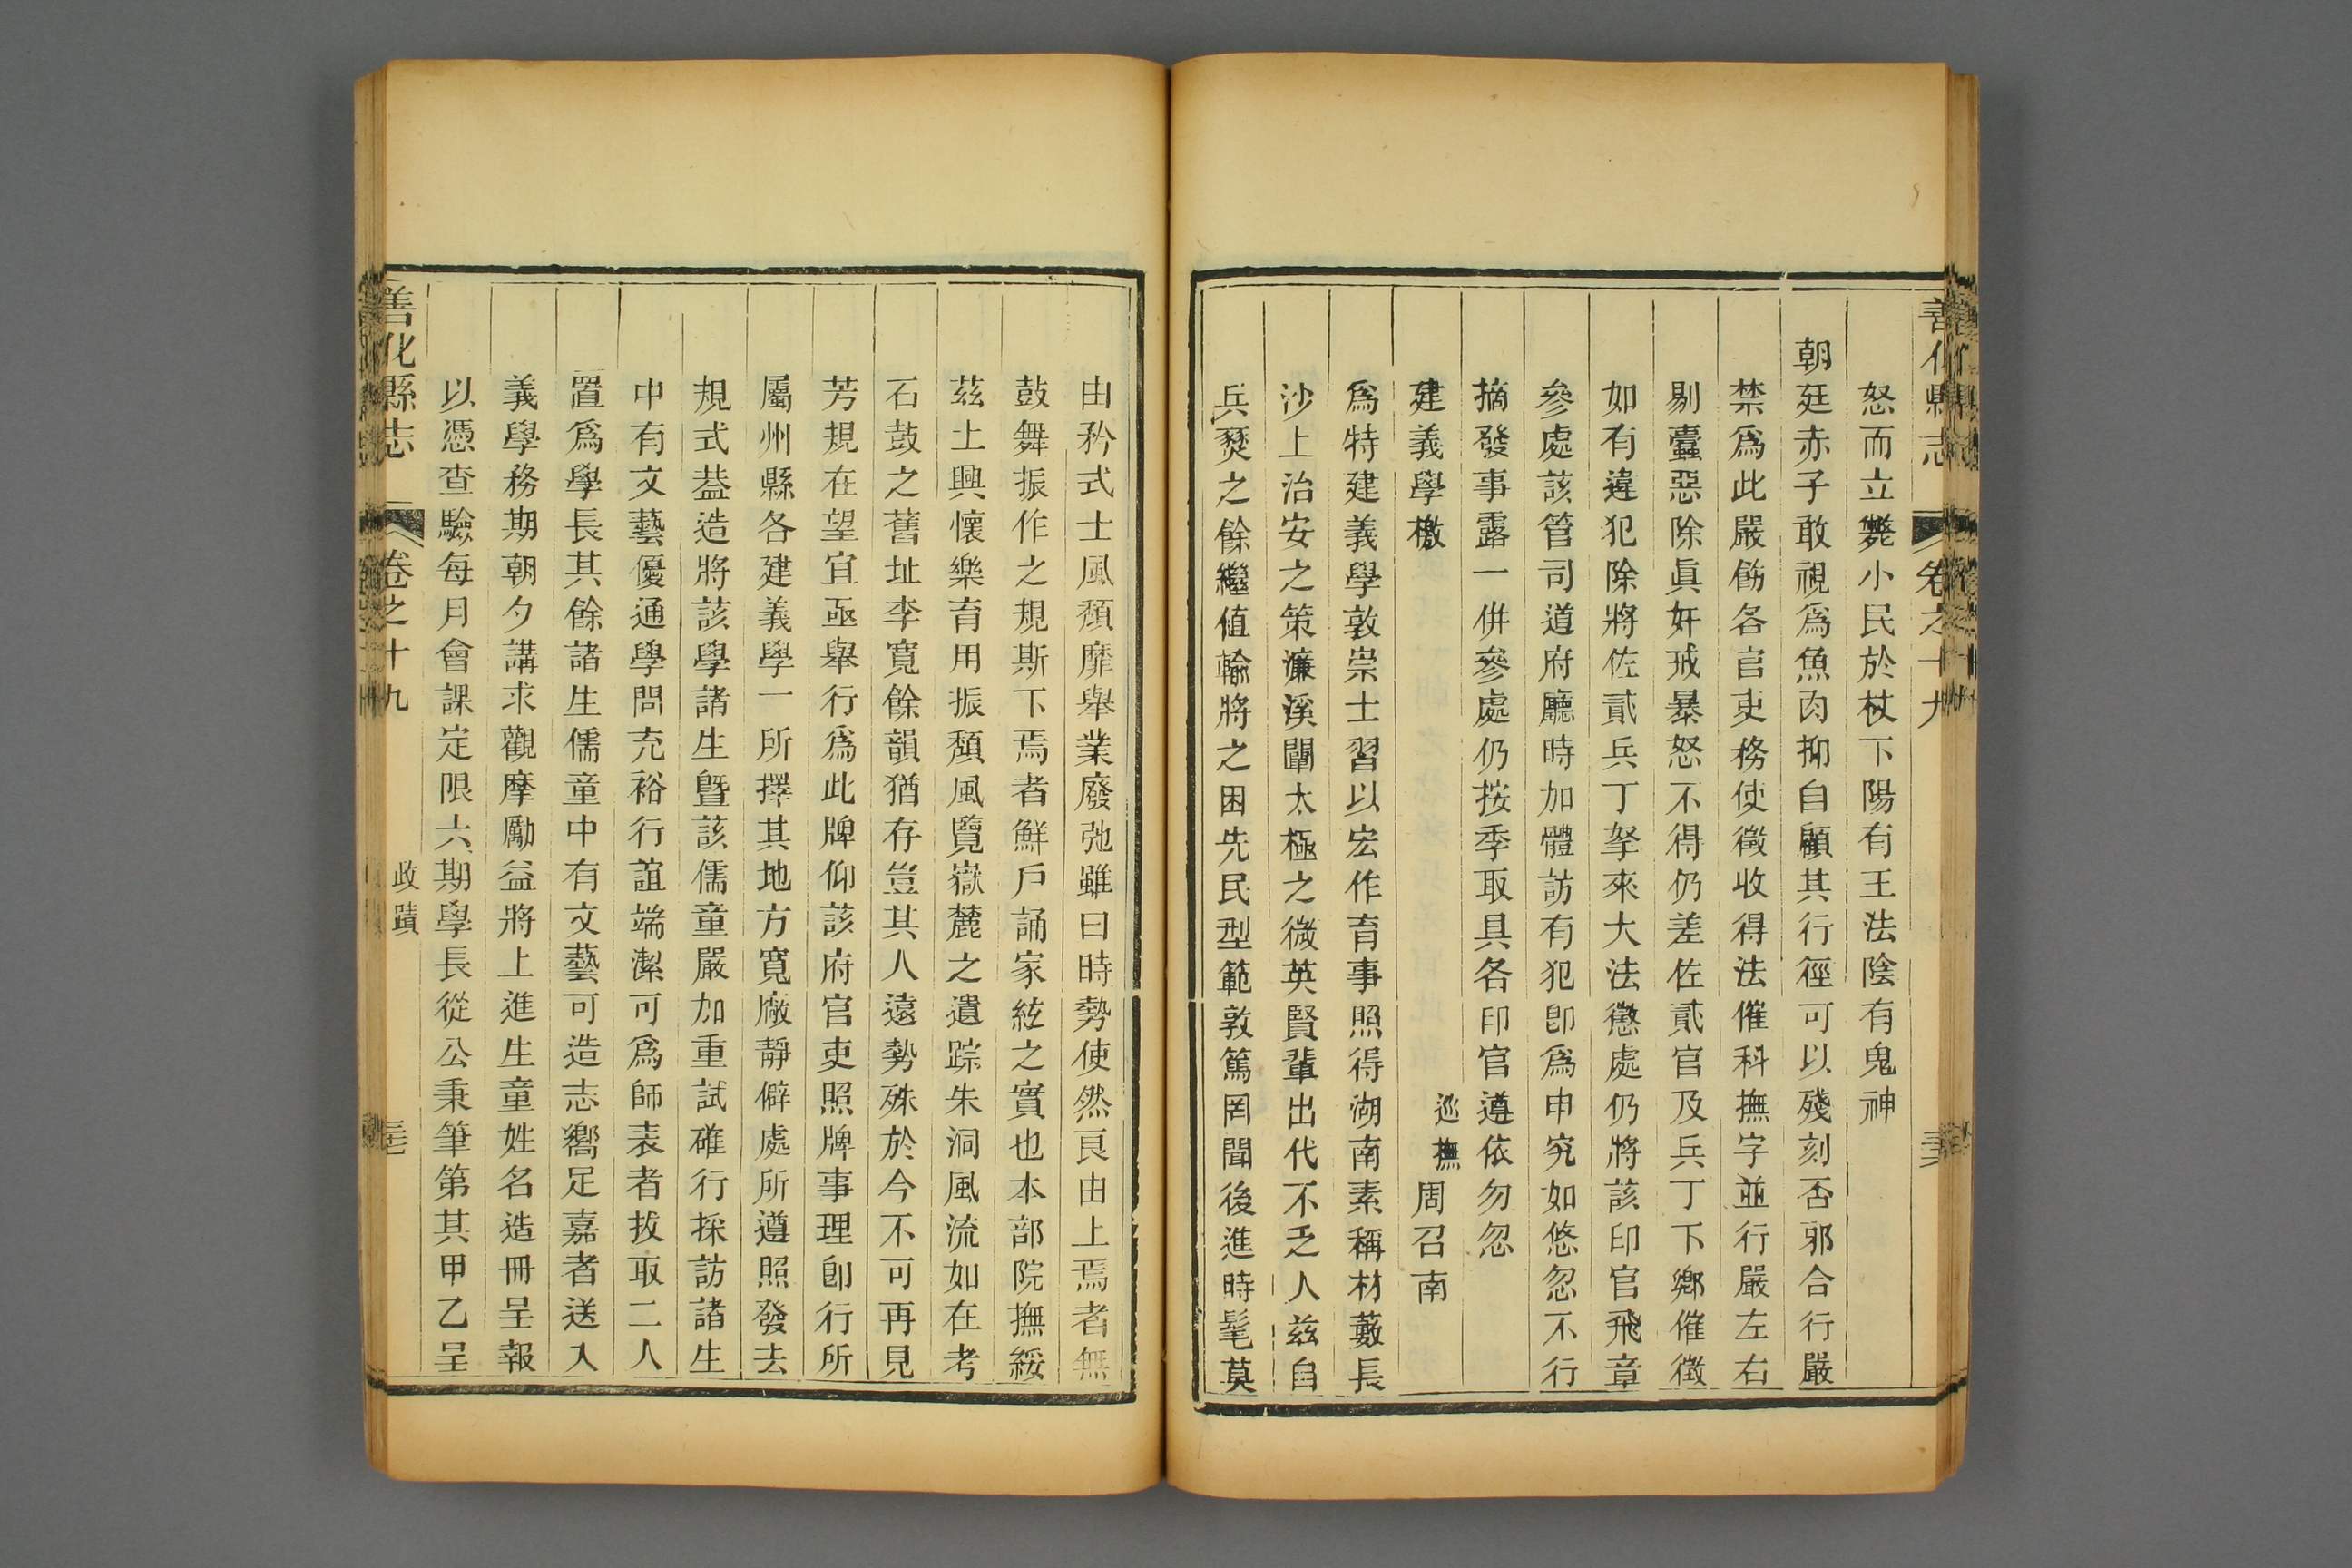 善化縣志 卷之十九
怒而立斃小民於杖下陽有王法陰有鬼神
朝廷赤子敢視爲魚肉抑自顧其行徑可以殘刻否耶合行嚴
禁爲此嚴飭各官吏務使徵收得法催科撫字並行嚴左右
剔蠹惡除眞奸戒暴怒不得仍差佐貳官及兵丁下鄉催徵
如有違犯除將佐貳兵丁拏來大法懲處仍將該印官飛章
參處該管司道府廳時加體訪有犯卽爲申究如悠忽不行
摘發事露一併參處仍按季取具各印官遵依勿忽
建義學檄 巡撫周召南
爲特建義學敦崇士習以宏作育事照得湖南素稱材藪長
沙上治安之策濂溪闡太極之微英賢輩出代不乏人茲自
兵燹之餘繼值輸將之困先民型範敦篤罔聞後進時髦莫
由矜式士風頹靡舉業廢弛雖曰時勢使然良由上焉者無
鼓舞振作之規斯下焉者鮮戶誦家絃之實也本部院撫綏
茲土興懷樂育用振頹風覽嶽麓之遺踪朱洞風流如在考
石鼓之舊址李寬餘韻猶存豈其人遠勢殊於今不可再見
芳規在望宜亟舉行爲此牌仰該府官吏照牌事理卽行所
屬州縣各建義學一所擇其地方寬廠靜僻處所遵照發去
規式葢造將該學諸生暨該儒童嚴加重試確行採訪諸生
中有文藝優通學問充裕行誼端潔可爲師表者拔取二人
置爲學長其餘諸生儒童中有文藝可造志嚮足嘉者送入
義學務期朝夕講求觀摩勵益將上進生童姓名造冊呈報
以憑查驗每月會課定限六期學長從公秉筆第其甲乙呈
善化縣志 卷之十九 政蹟